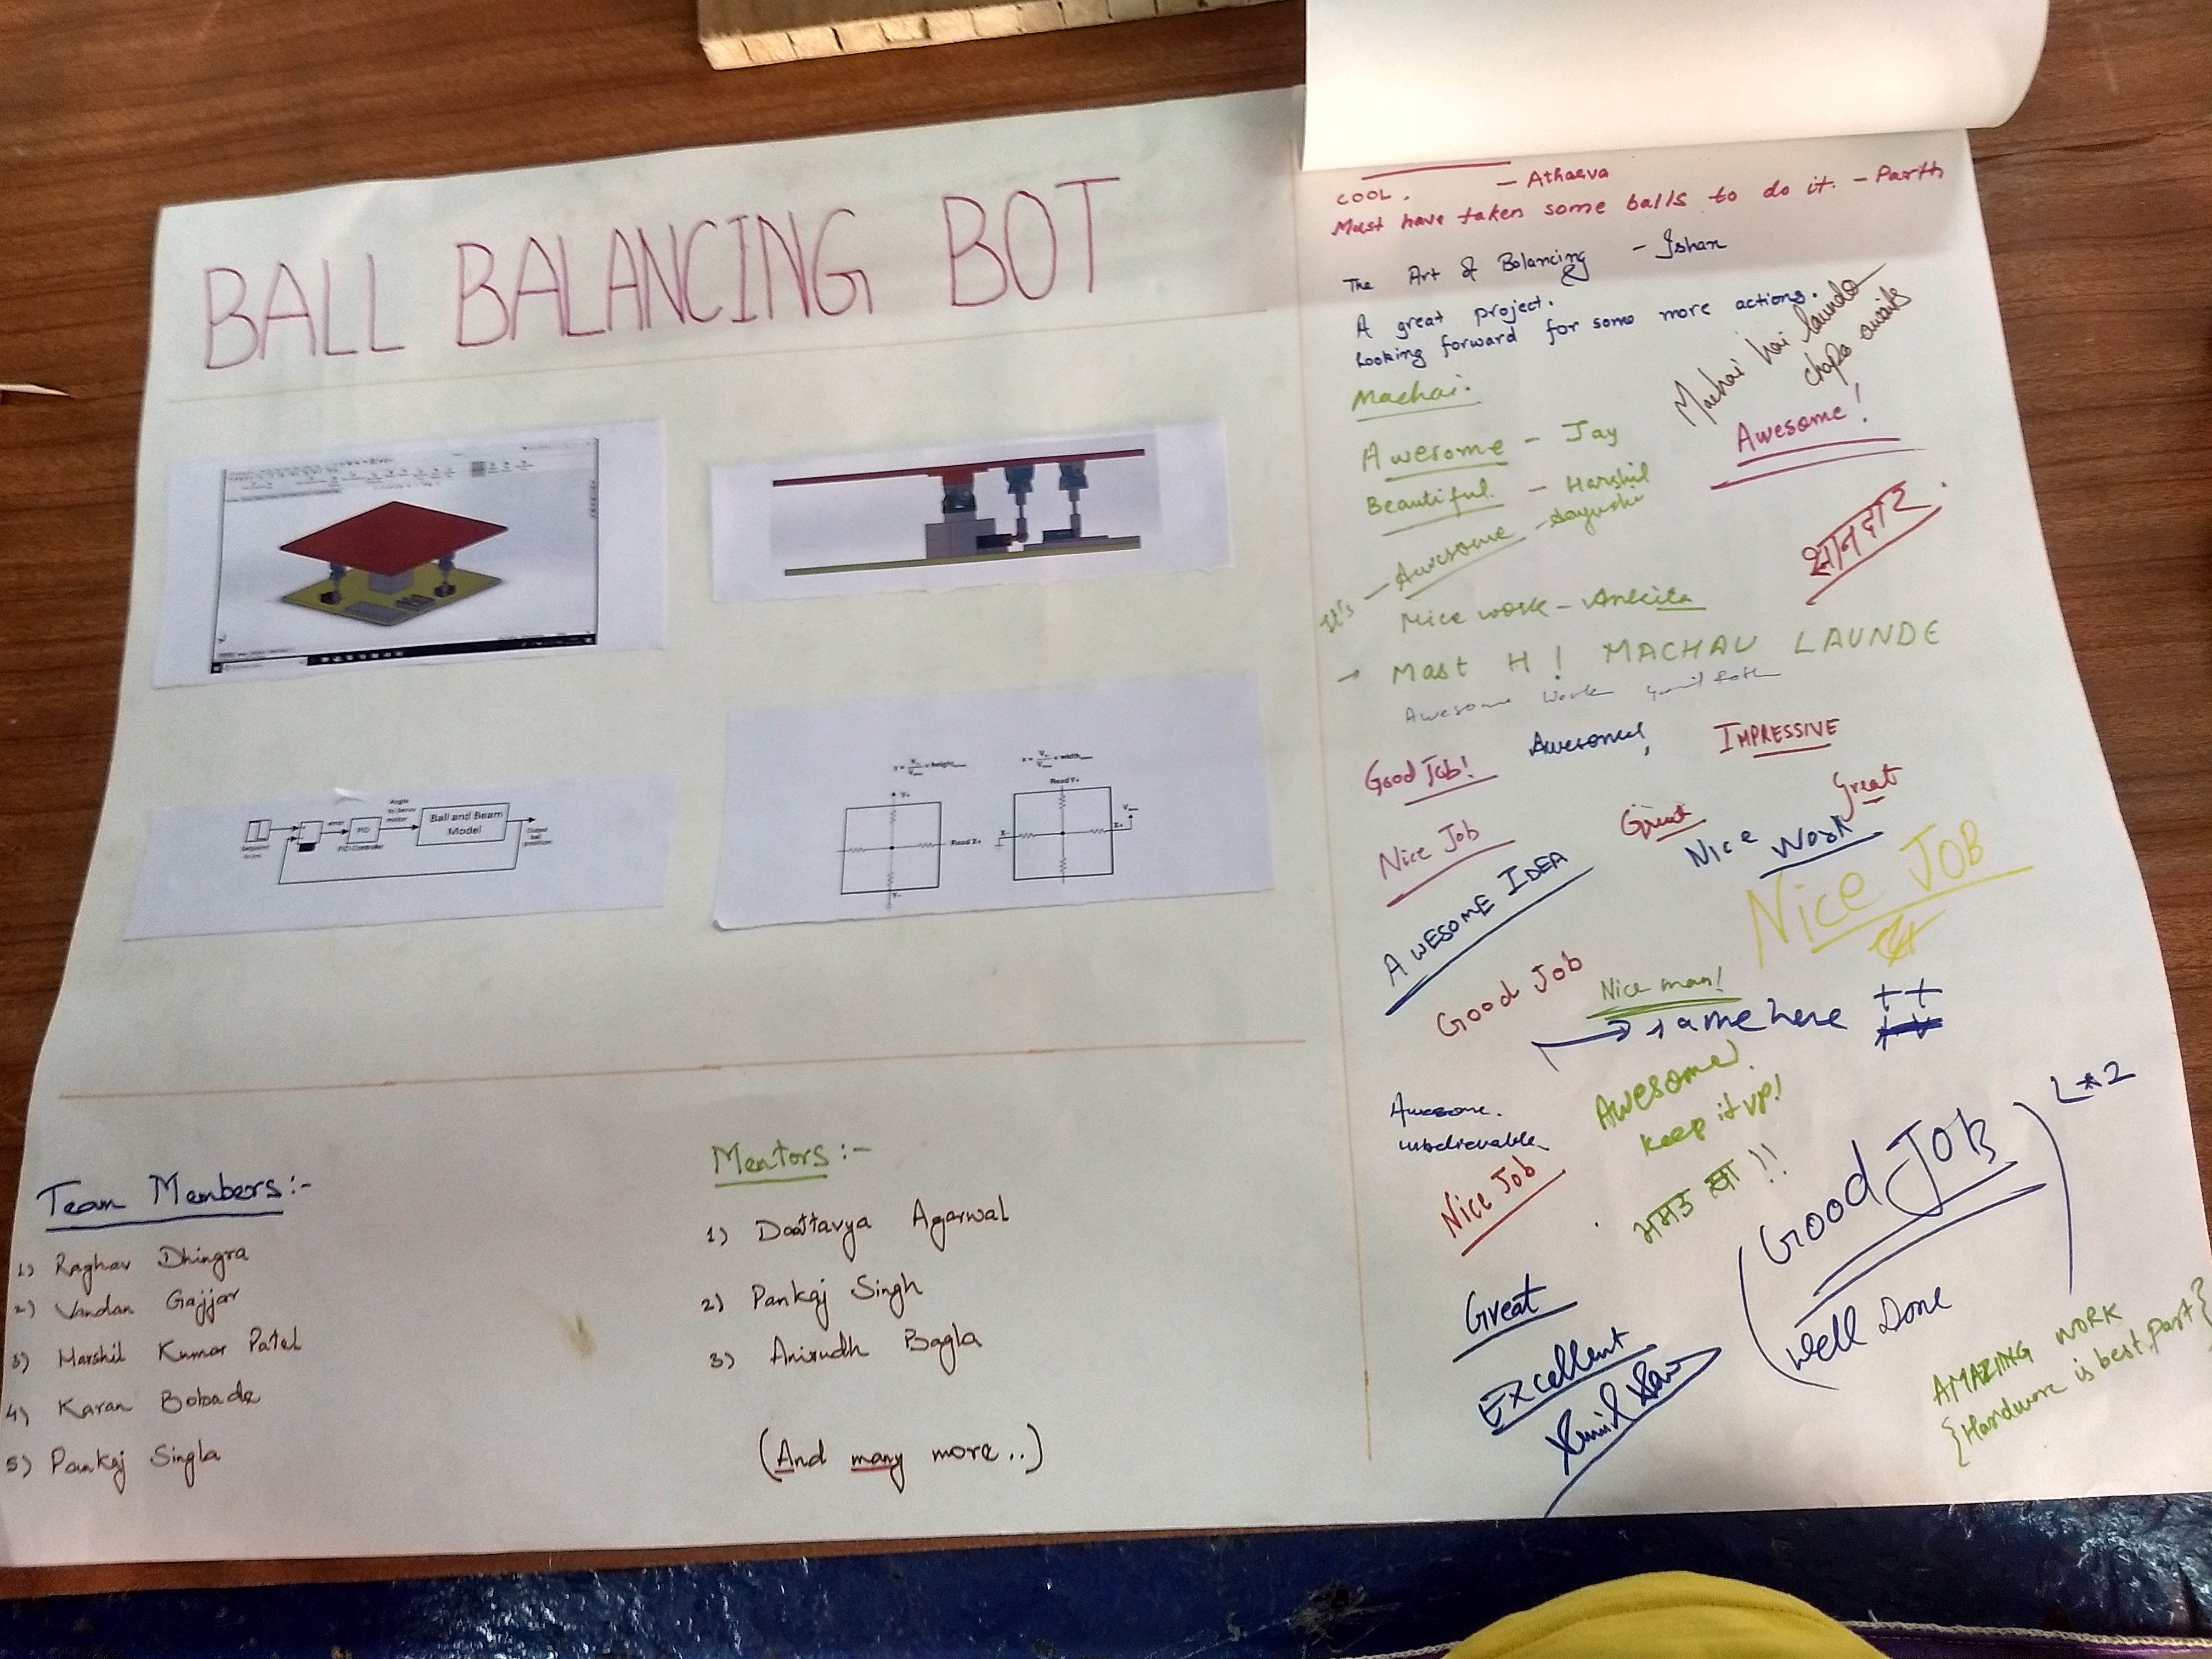 BALL BALANCING BOT
Setpoint
error
PID
PID Controller
Angle
to Servo
motor
Ball and Beam
Model
Output
ball
position
Read X+
Read Y+
V+
V-
X-
X+
Team Members:-
1) Raghav Dhingra
2) Vandan Gajjar
3) Harshil Kumar Patel
4) Karan Bobade
5) Pankaj Singla
Mentors:-
1) Dattavya Agarwal
2) Pankaj Singh
3) Anirudh Bagla
(And many more..)
COOL. - Atharva
Must have taken some balls to do it. - Parth
The Art of Balancing - Ishan
A great project.
Looking forward for some more actions.
Machai hai launde
Machai.
Awesome - Jay
Awesome!
Beautiful - Harshil
It's - Awesome - Aayushi
शानदार
Nice work - Ankita
→ Mast H! MACHAU LAUNDE
Awesome Work
Good Job!
Awesome
IMPRESSIVE
Great
Great
Nice Job
Nice Work
AWESOME IDEA
Nice JOB
Good Job
Nice man!
→ same here ++
Awesome.
unbelievable
Awesome.
keep it up!
Nice Job
ਅਸਤ
Good JOB
L*2
Well Done
Great
Excellent
AMAZING WORK
{Hardware is best part}